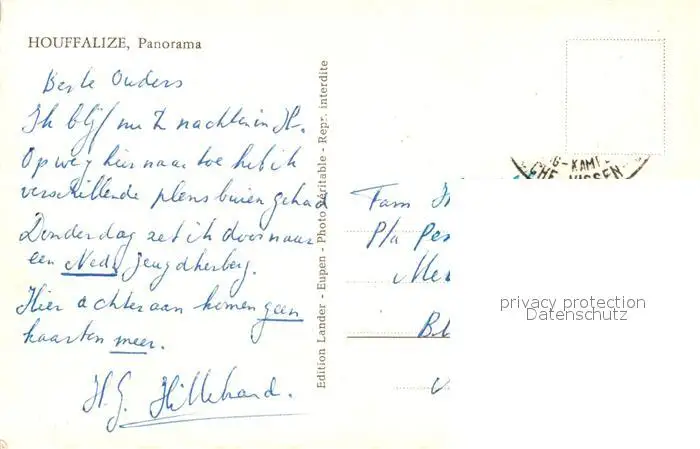 HOUFFALIZE, Panorama
Beste Ouders
Ik blijf nu 2 nachten in H.
Op weg hier naar toe heb ik
verschillende plensbuien gehad
Donderdag zet ik door naar
een Ned. Jeugdherberg.
Hier achteraan komen geen
kaarten meer.
H.G. Hillebrand.
Edition Lander - Eupen - Photo véritable - Repr. interdite
G-KAMP
CHE VISSEN
Fam H
P/a Pen
Mer
Bl
privacy protection
Datenschutz